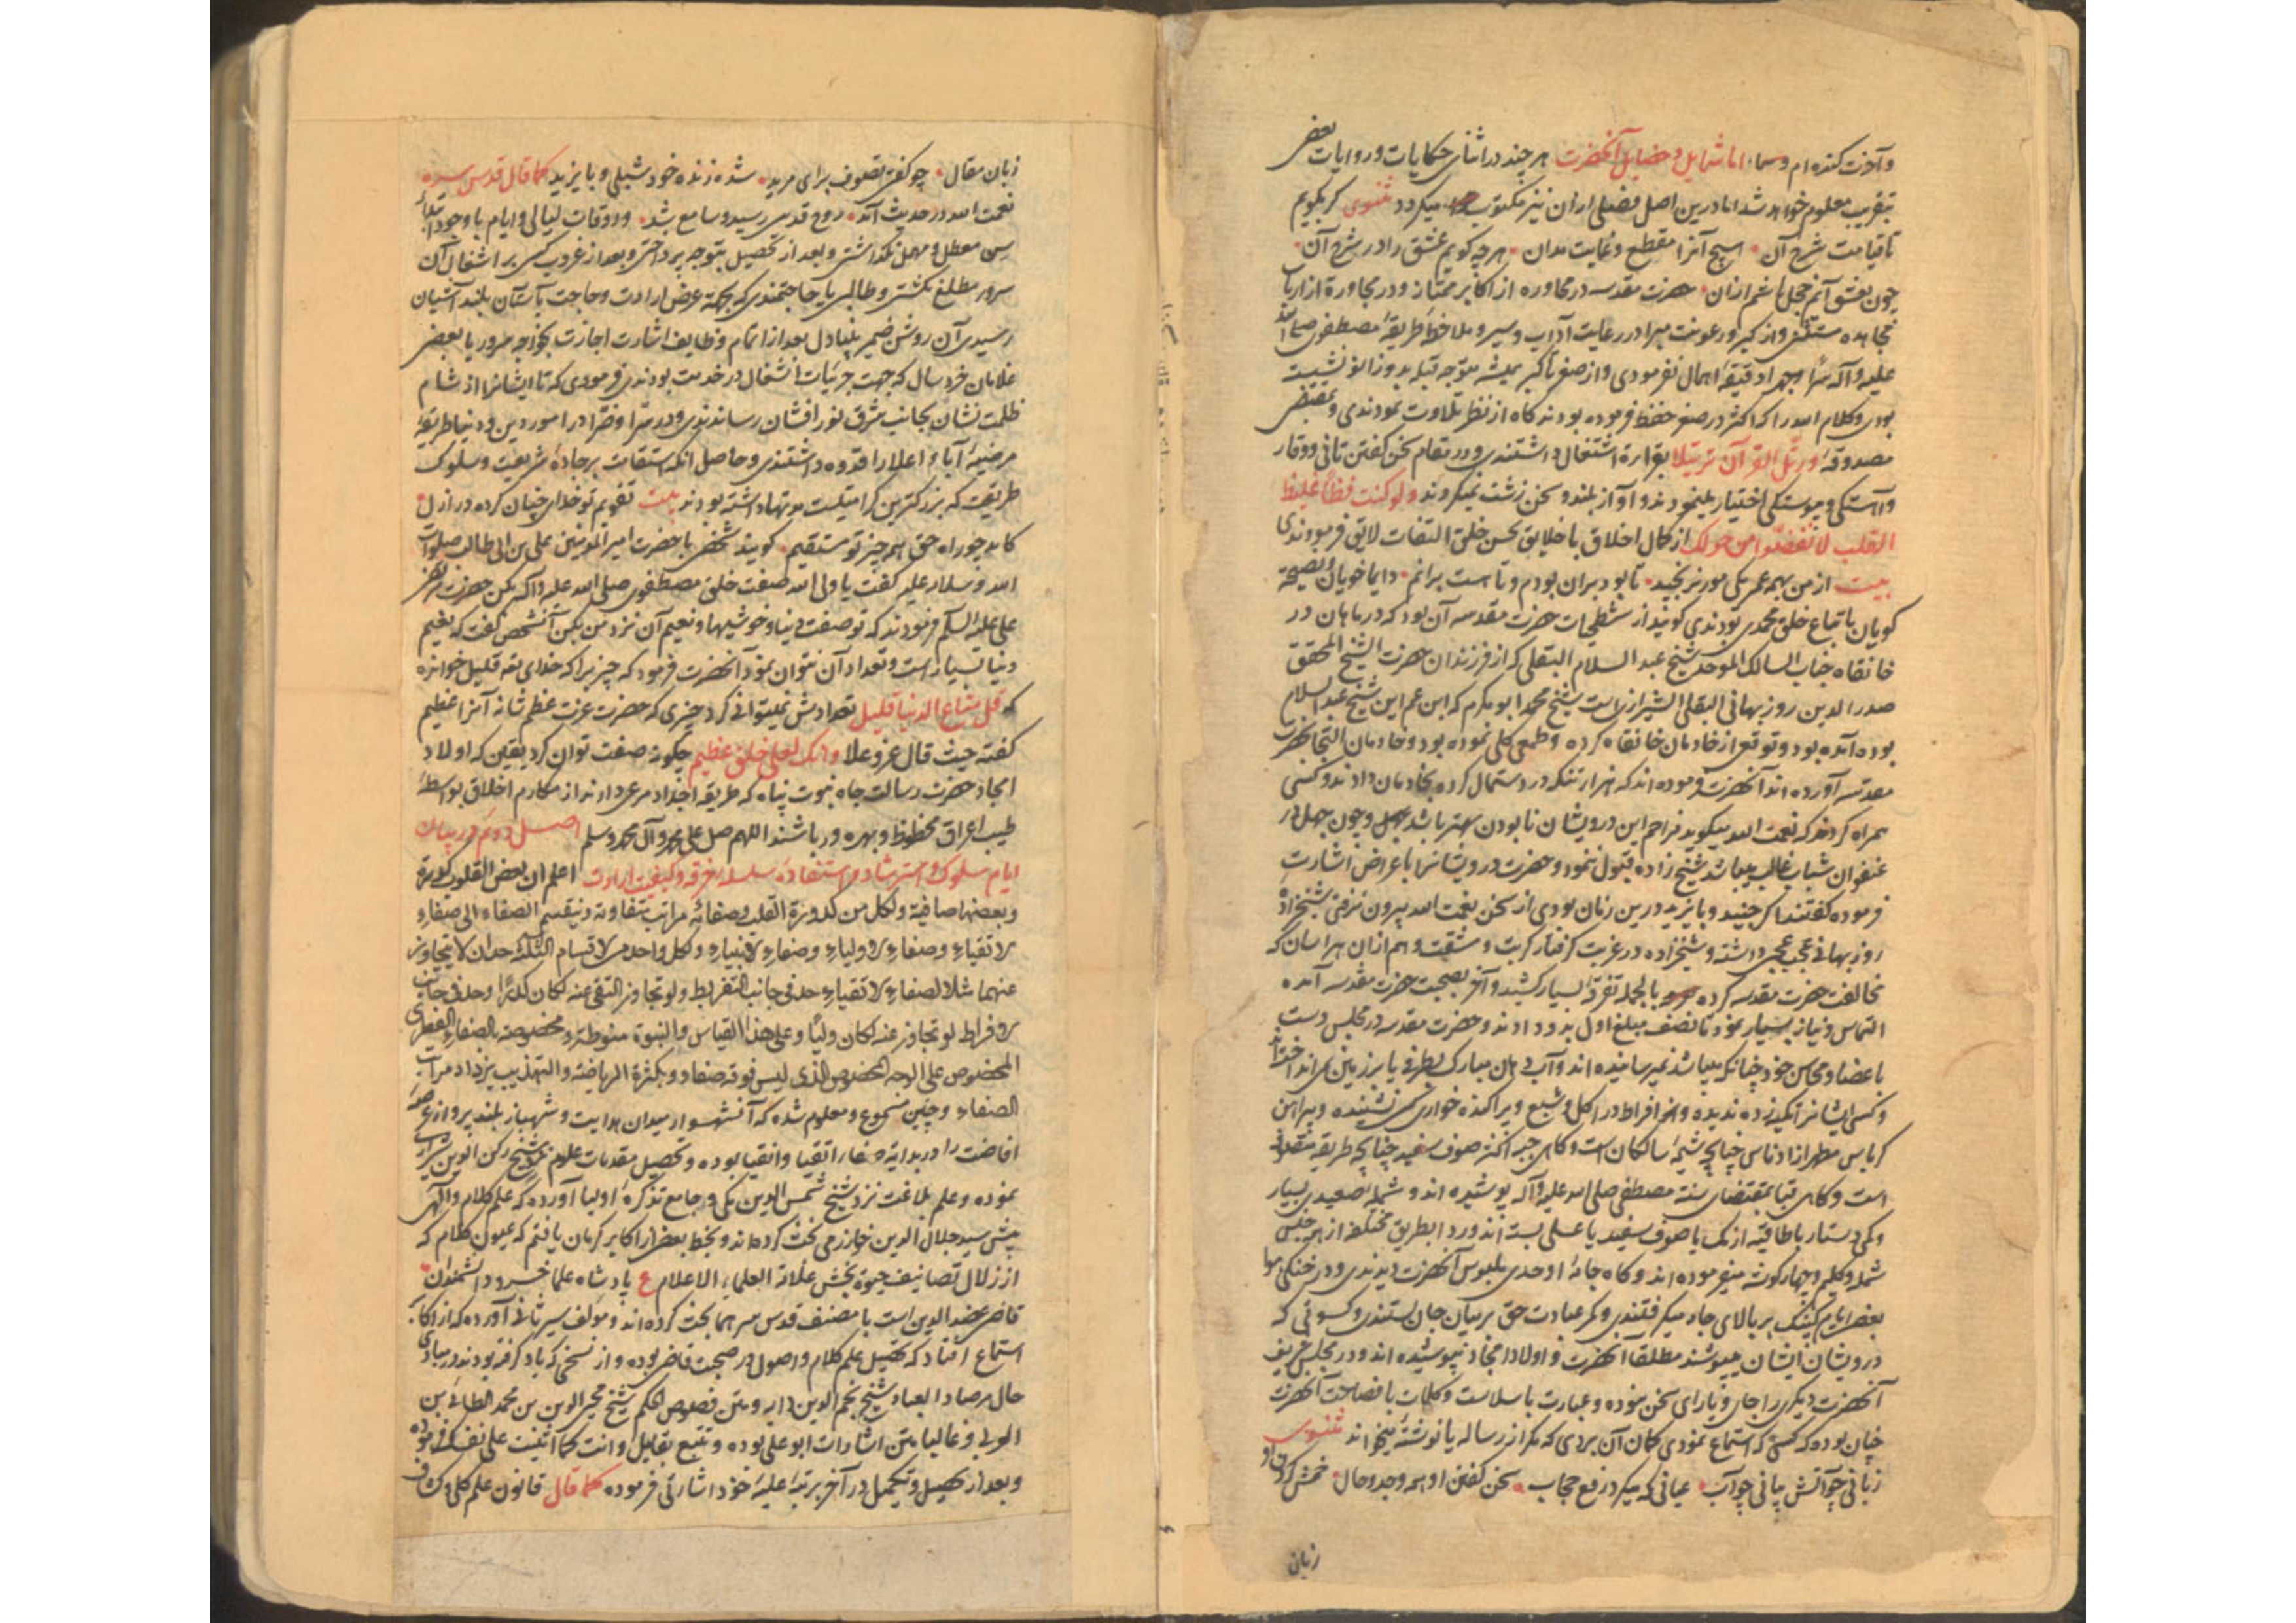 و آخرت کنده ام وسما اما شمایل و خصایل آنحضرت هر چند در اثنای حکایات و روایات بعضی
بتقریب معلوم خواهد شد اما درین اصل فصلی از آن نیز مکتوب میکردد مثنوی کر بکویم
تا قیامت شرح آن هیچ آنرا مقطع و غایت مدان هر چه کویم عشق را در شرح آن
چون بعشق آیم خجل باشم از آن حضرت مقدسه در محاوره از اکابر ممتاز و در مجاورة از ارباب
مجاهده مستثنی و از کبر و رعونت مبرا در رعایت آداب و سیر و ملاحظه طریقه مصطفوی صلی الله
علیه و آله سرا و جهرا دقیقه اهمال نفرمودی و از صغر تا کبر همیشه متوجه قبله بدو زانو نشسته
بودی و کلام الله را که اکثر در صغر حفظ فرموده بودند کاه از نظر تلاوت نمودندی و بمقتضی
مصدوقه و رتل القرآن ترتیلا بقراءة اشتغال داشتندی و در مقام سخن کفتن تانی و وقار
و آهستکی و پیوستکی اختیار مینمودند و آواز بلند و سخن زشت نمیکردند و لو کنت فظا غلیظ
القلب لانفضوا من حولک از کمال اخلاق با خلایق بحسن خلق التفات لایق فرمودندی
بیت از من بهمه عمر یکی مور نرنجید تا بود بران بودم و تا هست برانم دایما خویان و نصیحة
کویان باتباع خلق محمدی بودندی کویند از شطحیات حضرت مقدسه آن بود که در ماهان در
خانقاه جناب السالک الموحد شیخ عبد السلام البقلی که از فرزندان حضرت الشیخ المحقق
صدر الدین روزبهانی البقلی الشیرازیست شیخ محمد ابو مکرم که ابن عم این شیخ عبد السلام
بوده آمده بود و توقع از خادمان خانقاه کرده و طمعی کلی نموده بود و خادمان التجا بحضرت
مقدسه آورده اند آنحضرت فرموده اند که هزار تنکه در دستمال کرده بخادمان دادند و کسی
همراه کردند که نعمت الله میکوید مزاحم این درویشان نا بودن بهتر باشد و چون جهل در
عنفوان شباب غالب میباشد شیخ زاده قبول ننمود و حضرت درویشانرا باعراض اشارت
فرموده کفتند اکر جنید و بایزید درین زمان بودی از سخن نعمت الله بیرون نرفتی شیخ زاده
روزبهانی عجب عجبی داشته و شیخ زاده در غربت کرفتار کربت و مشقت و هم از آن هراسان که
مخالفت حضرت مقدسه کرده بالجمله تفرقه بسیار کشید و آخر بصحبت حضرت مقدسه آمده
التماس و نیاز بسیار نمود تا نصف مبلغ اول بدو دادند و حضرت مقدسه در مجلس دست
باعضا و محاسن خود چنانکه میباشد نمیرسانیده اند و آب دهان مبارک بطرفی یا بر زمین نمی انداختند
و کسی ایشانرا تکیه زده ندیده و هوا افراط در اکل و شبع و پراکنده خواری کس نشنیده و پیراهن
کرباس مطهر از ادناس چنانچه شیمه سالکان است و کاهی جبه اکثر صوف سفید چنانچه طریقه متقدمان
است و کاهی قبا بمقتضای سنة مصطفی صلی الله علیه و آله پوشیده اند و شمله صعیدی بسیار
و کمی دستار با طاقیه از نمک یا صوف سفید یا عسلی بسته اند و ردا بطریق مختلفه از هر جنس
شمله و کلیم و چهار کوشه میفرموده اند و کاه جامه اوحدی ملبوس آنحضرت دیدندی و در خنکی هوا
بعضی ایام کپنک بر بالای جامه میکرفتندی و کمر عبادت حق بر میان جان بستندی و کسوتی که
درویشان ایشان میپوشند مطلقا آنحضرت و اولاد امجاد نپوشیده اند و در مجلس شریف
آنحضرت دیکری را جای و یارای سخن نبوده و عبارت با سلاست و کلمات با فصاحت آنحضرت
چنان بوده که کسی که استماع نمودی کمان آن بردی که مکر از رساله یا نوشته میخواند مثنوی
زبانی چو آتش بیانی چو آب عیانی که میکرد رفع حجاب سخن کفتن او همه وجد و حال خمش کردن او
زبان
زبان مقال چو کفتی تصوف برای مرید شده زنده خود شبلی و بایزید کما قال قدس سره
نعمت الله در حدیث آمد روح قدسی رسید و سامع شد و اوقات لیالی و ایام با وجود ابتلاء
سی معطل و مهمل نکذاشتی و بعد از تحصیل بتوجه پرداختی و بعد از غروب کسی بر اشغال آن
سرور مطلع نکشتی و طالبی یا حاجتمندی که بجهة عرض ارادت و حاجت بآستان بلند آشیان
رسیدی آن روشن ضمیر بیدار دل بعد از اتمام وظایف اشارت اجازت بخواجه سرور یا بعضی
غلامان خرد سال که جهت جزئیات اشغال در خدمت بودندی فرمودی که تا ایشانرا از شام
ظلمت نشان بجانب مشرق نور افشان رساندندی و در سرا و ضرا در امور دین و دنیا طریقه
مرضیه آباء اعلا را قدوه داشتندی و حاصل آنکه استقامت بر جاده شریعت و سلوک
طریقت که بزرکترین کرامتیست مدتها داشته بودند بیت تقویم تو خدای چنان کرده در ازل
کاید چو راه حق همه چیز تو مستقیم کویند شخصی با حضرت امیر المؤمنین علی بن ابی طالب صلوات
الله و سلامه علیه کفت یا ولی الله صفت خلق مصطفوی صلی الله علیه و آله بکن حضرت مرتضی
علی علیه السلام فرمودند که تو صفت دنیا و خوشیها و نعیم آن نزد من بکن آنشخص کفت که نعیم
دنیا بسیار است و تعداد آن نتوان نمود آنحضرت فرمود که چیزیرا که خدای تعه قلیل خوانده
که قل متاع الدنیا قلیل تعدادش نمیتوانی کرد چیزی که حضرت عزت عظم شانه آنرا عظیم
کفته حیث قال عز و علا و انک لعلی خلق عظیم چکونه صفت توان کرد یقین که اولاد
امجاد حضرت رسالت جاه نبوت پناه که طریقه اجداد مرعی دارند از مکارم اخلاق بواسطه
طیب اعراق محظوظ و بهره ور باشند اللهم صل علی محمد و آل محمد و سلم اصل دوم در بیان
ایام سلوک و استرشاد و استفاده سلسله خرقه و کیفیت ارادت اعلم ان بعض القلوب کدرة
و بعضها صافیة و لکل من کدورة القلب و صفائه مراتب متفاوتة و ینقسم الصفاء الی صفاء
الاتقیاء و صفاء الاولیاء و صفاء الانبیاء و لکل واحد من الاقسام الثلثة حدان لا یتجاوز
عنهما مثلا لصفاء الاتقیاء حد فی جانب التفریط و لو تجاوز التقی عنه لکان کدرا و حد فی جانب
الافراط لو تجاوز عنه لکان ولیا و علی هذا القیاس و النبوة منوطة و مخصوصة بالصفاء الفطری
المخصوص علی الوجه المخصوص الذی لیس فوقه صفاء و بکثرة الریاضة و التهذیب یزداد مراتب
الصفاء و چنین مسموع و معلوم شده که آن شهسوار میدان هدایت و شهباز بلند پرواز عرصه
افاضت را در بدایة صفاء اتقیا و انقیا بوده و تحصیل مقدمات علوم نزد شیخ رکن الدین شیرازی
نموده و علم بلاغت نزد شیخ شمس الدین مکی و جامع تذکره اولیا آورده که علم کلام و الهی
پیش سید جلال الدین خوارزمی بحث کرده اند و بخط بعضی از اکابر کرمان یافتم که عیون کلام که
از زلال تصانیف حیوة بخش علامة العلماء الاعلام ع پادشاه علما خسرو دانشمندان
قاضی عضد الدین است با مصنف قدس سرهما بحث کرده اند و مؤلف سیر ثانی آورده که از اکابر
استماع افتاد که تحصیل علم کلام و اصول در صحبت قاضی بوده و از نسخی که یاد کرفته بودند در مبادی
حال مرصاد العباد شیخ نجم الدین دایه و متن فصوص الحکم شیخ محیی الدین بن محمد الطائی بن
العربی و غالبا متن اشارات ابو علی بوده و تتبع بقایل و انت کما اثنیت علی نفسک فرموده
و بعد از تحصیل و تکمیل در آخر بر تبه علیه خود اشارتی فرموده کما قال قانون علم کلی و کشاف